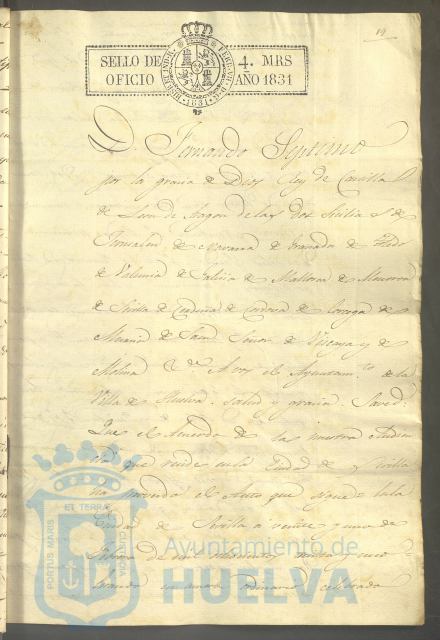 19
SELLO DE 4. MRS
OFICIO AÑO 1831
HISPAN. INDIAR. FERD. VII. D. G.
1831
D. Fernando Septimo
por la gracia de Dios Rey de Castilla
de Leon de Aragon de las dos Sicilias de
Jerusalen de Navarra de Granada de Toledo
de Valencia de Galicia de Mallorca de Menorca
de Sevilla de Cerdeña de Cordova de Corcega de
Murcia de Jaen Señor de Vizcaya y de
Molina &a A vos el Ayuntamto de la
Villa de Huelva. salud y gracia. Saved:
Que el Acuerdo de la nuestra Audien
cia que reside en la Ciudad de Sevilla
ha el Auto que sigue = En la
Ciudad de Sevilla a veinte y uno de
de mil ochocientos treinta y uno
estando en Acuerdo ordinario celebrado
PORTUS MARIS ET TERRAE CUSTODIA
Ayuntamiento de
HUELVA